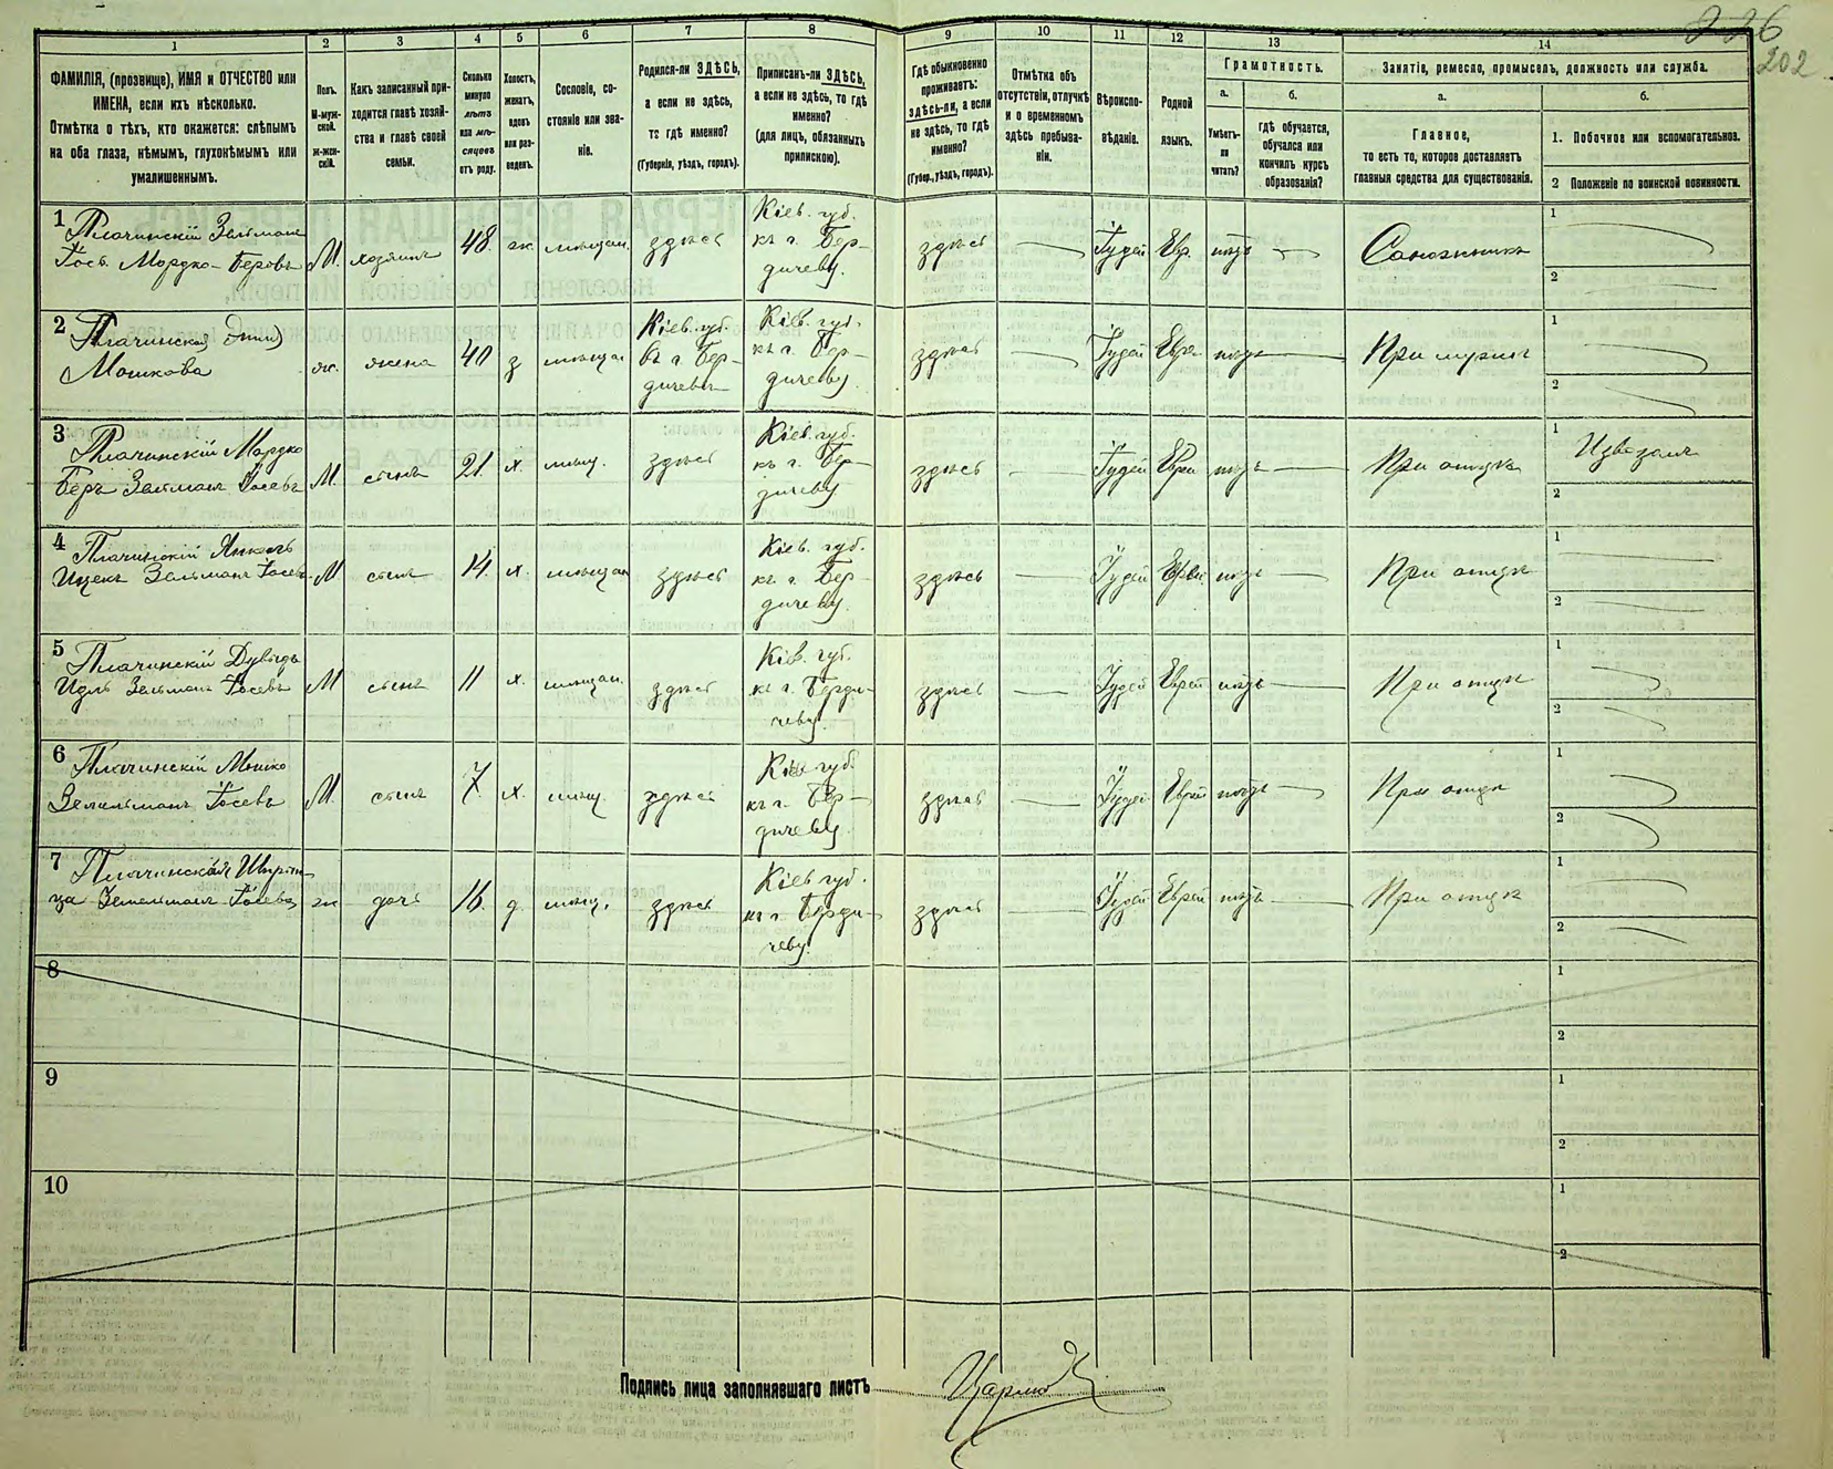 226
202
1
2
3
4
5
6
7
8
9
10
11
12
13
14
ФАМИЛІЯ, (прозвище), ИМЯ и ОТЧЕСТВО или
ИМЕНА, если ихъ нѣсколько.
Отмѣтка о тѣхъ, кто окажется: слѣпымъ
на оба глаза, нѣмымъ, глухонѣмымъ или
умалишеннымъ.
Полъ.
М-муж-
ской.
Ж-жен-
скій.
Какъ записанный при-
ходится главѣ хозяй-
ства и главѣ своей
семьи.
Сколько
минуло
лѣтъ
или мѣ-
сяцевъ
отъ роду.
Холостъ,
женатъ,
вдовъ
или раз-
веденъ.
Сословіе, со-
стояніе или зва-
ніе.
Родился-ли ЗДѢСЬ,
а если не здѣсь,
то гдѣ именно?
(Губернія, уѣздъ, городъ).
Приписанъ-ли ЗДѢСЬ,
а если не здѣсь, то гдѣ
именно?
(для лицъ, обязанныхъ
припискою).
Гдѣ обыкновенно
проживаетъ:
здѣсь-ли, а если
не здѣсь, то гдѣ
именно?
(Губер., уѣздъ, городъ).
Отмѣтка объ
отсутствіи, отлучкѣ
и о временномъ
здѣсь пребыва-
ніи.
Вѣроиспо-
вѣданіе.
Родной
языкъ.
Грамотность.
а.
Умѣетъ-
ли
читать?
б.
гдѣ обучается,
обучался или
кончилъ курсъ
образованія?
Занятіе, ремесло, промыселъ, должность или служба.
а.
Главное,
то есть то, которое доставляетъ
главныя средства для существованія.
б.
1. Побочное или вспомогательное.
2 Положеніе по воинской повинности.
1 Плачинскій Зельманъ
Іос. Мордко-Беровъ М. хозяинъ 48. ж. мѣщан. здѣсь
Кіев. губ.
къ г. Бер-
дичеву.
здѣсь Іудей Евр. нѣтъ Сапожникъ
1
2
2 Плачинская
Мошкова ж. жена 40 з мѣщан
Кіев. губ.
въ г. Бер-
дичевѣ
Кіев. губ.
къ г. Бер-
дичеву.
здѣсь Іудей Евре. нѣтъ При мужѣ
1
2
3 Плачинскій Мордко
Беръ Зельманъ Іосевъ М. сынъ 21. х. мѣщ. здѣсь
Кіев. губ.
къ г. Бер-
дичеву
здѣсь Іудей Еврей нѣтъ При отцѣ
1
2
4 Плачинскій Янкель
Ицекъ Зельманъ Іосевъ М сынъ 14. х. мѣщан здѣсь
Кіев. губ.
къ г. Бер-
дичеву.
здѣсь Іудей Еврей нѣтъ При отцѣ
1
2
5 Плачинскій Дувидъ
Идль Зельманъ Іосевъ М сынъ 11 х. мѣщан. здѣсь
Кіев. губ.
къ г. Берди-
чеву.
здѣсь Іудей Еврей нѣтъ При отцѣ
1
2
6 Плачинскій Мошко
Зельманъ Іосевъ М. сынъ 7. х. мѣщ. здѣсь
Кіев губ.
къ г. Бер-
дичеву.
здѣсь Іудей Еврей нѣтъ При отцѣ
1
2
7 Плачинская
Іосева ж дочь 16. д. мѣщ. здѣсь
Кіев губ.
къ г. Берди-
чеву.
здѣсь Іудей Еврей нѣтъ При отцѣ
1
2
8
1
2
9
1
2
10
1
2
Подпись лица заполнявшаго листъ